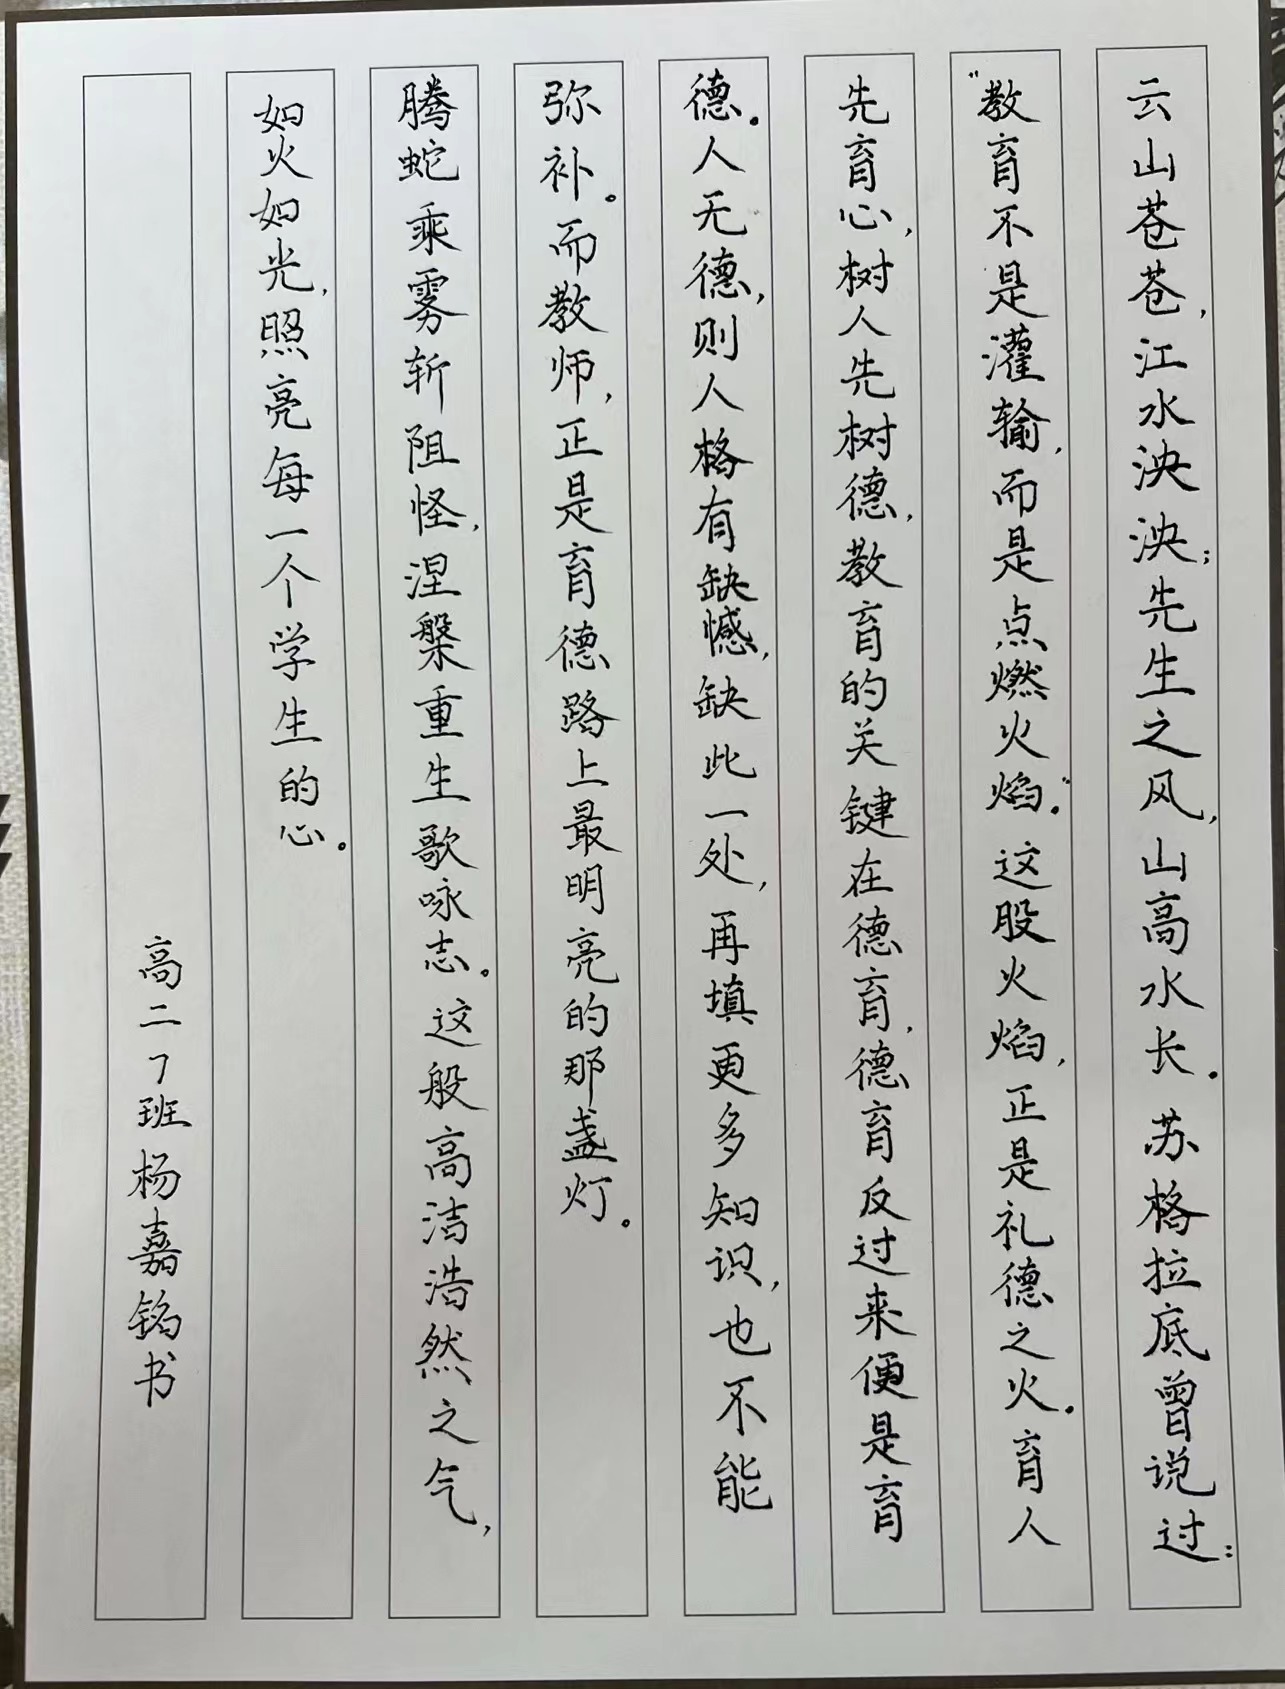 云山苍苍，江水泱泱；先生之风，山高水长。苏格拉底曾说过：
“教育不是灌输，而是点燃火焰。”这股火焰，正是礼德之火。育人
先育心，树人先树德，教育的关键在德育，德育反过来便是育
德。人无德，则人格有缺憾，缺此一处，再填更多知识，也不能
弥补。而教师，正是育德路上最明亮的那盏灯。
腾蛇乘雾斩阻怪，涅槃重生歌咏志。这般高洁浩然之气，
如火如光，照亮每一个学生的心。
高二7班杨嘉铭书